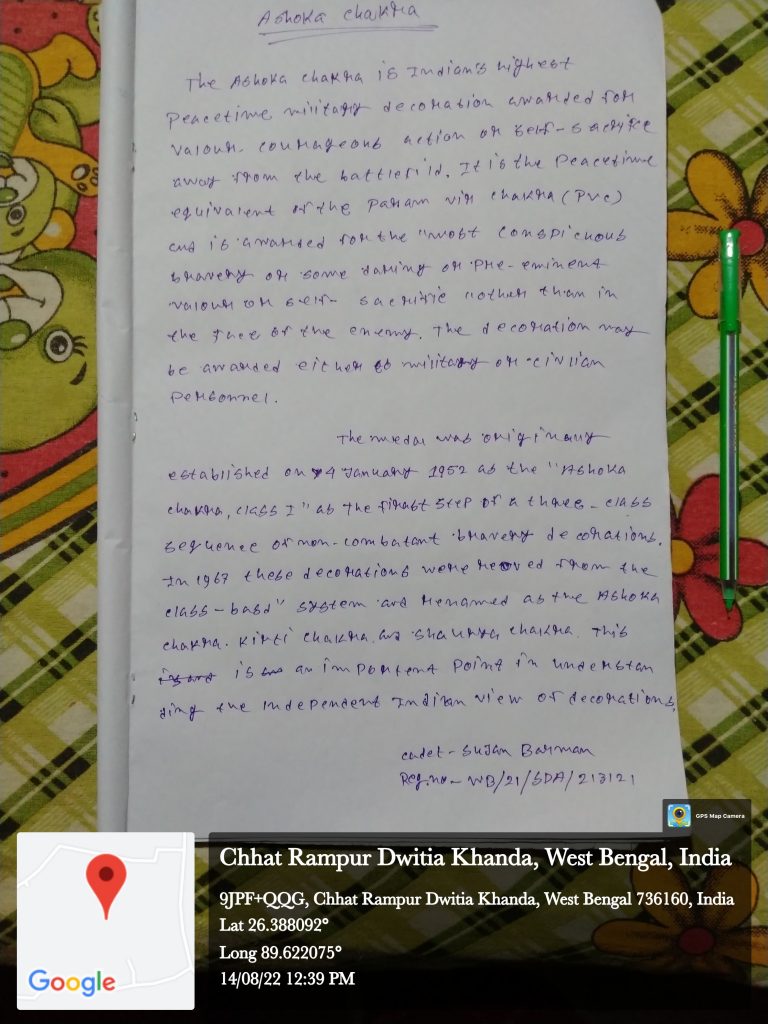 Ashoka chakra
The Ashoka chakra is Indian's highest
Peacetime military decoration awarded for
valour. courageous action or self-sacrifice
away from the battlefild. It is the peacetime
equivalent of the Param vir chakra (Pvc)
and is awarded for the "most conspichous
bravery or some daring or pre-eminent
valour or self- sacrifie "other than in
the face of the enemy. The decoration may
be awarded either to military or civilian
personnel.
The medal was originally
established on 4 January 1952 as the "Ashoka
chakra, class I" as the first step of a three-class
sequence of non-combatant bravery decorations.
In 1967 these decorations were removed from the
class-basd" system and renamed as the Ashoka
chakra. Kirti chakra, and Shaurya chakra. This
is an importent point in understan
ding the independent Indian view of decorations.
cadet - Sujan Barman
Reg.no - WB/21/SDA/213121
GPS Map Camera
Chhat Rampur Dwitia Khanda, West Bengal, India
9JPF+QQG, Chhat Rampur Dwitia Khanda, West Bengal 736160, India
Lat 26.388092°
Long 89.622075°
14/08/22 12:39 PM
Google